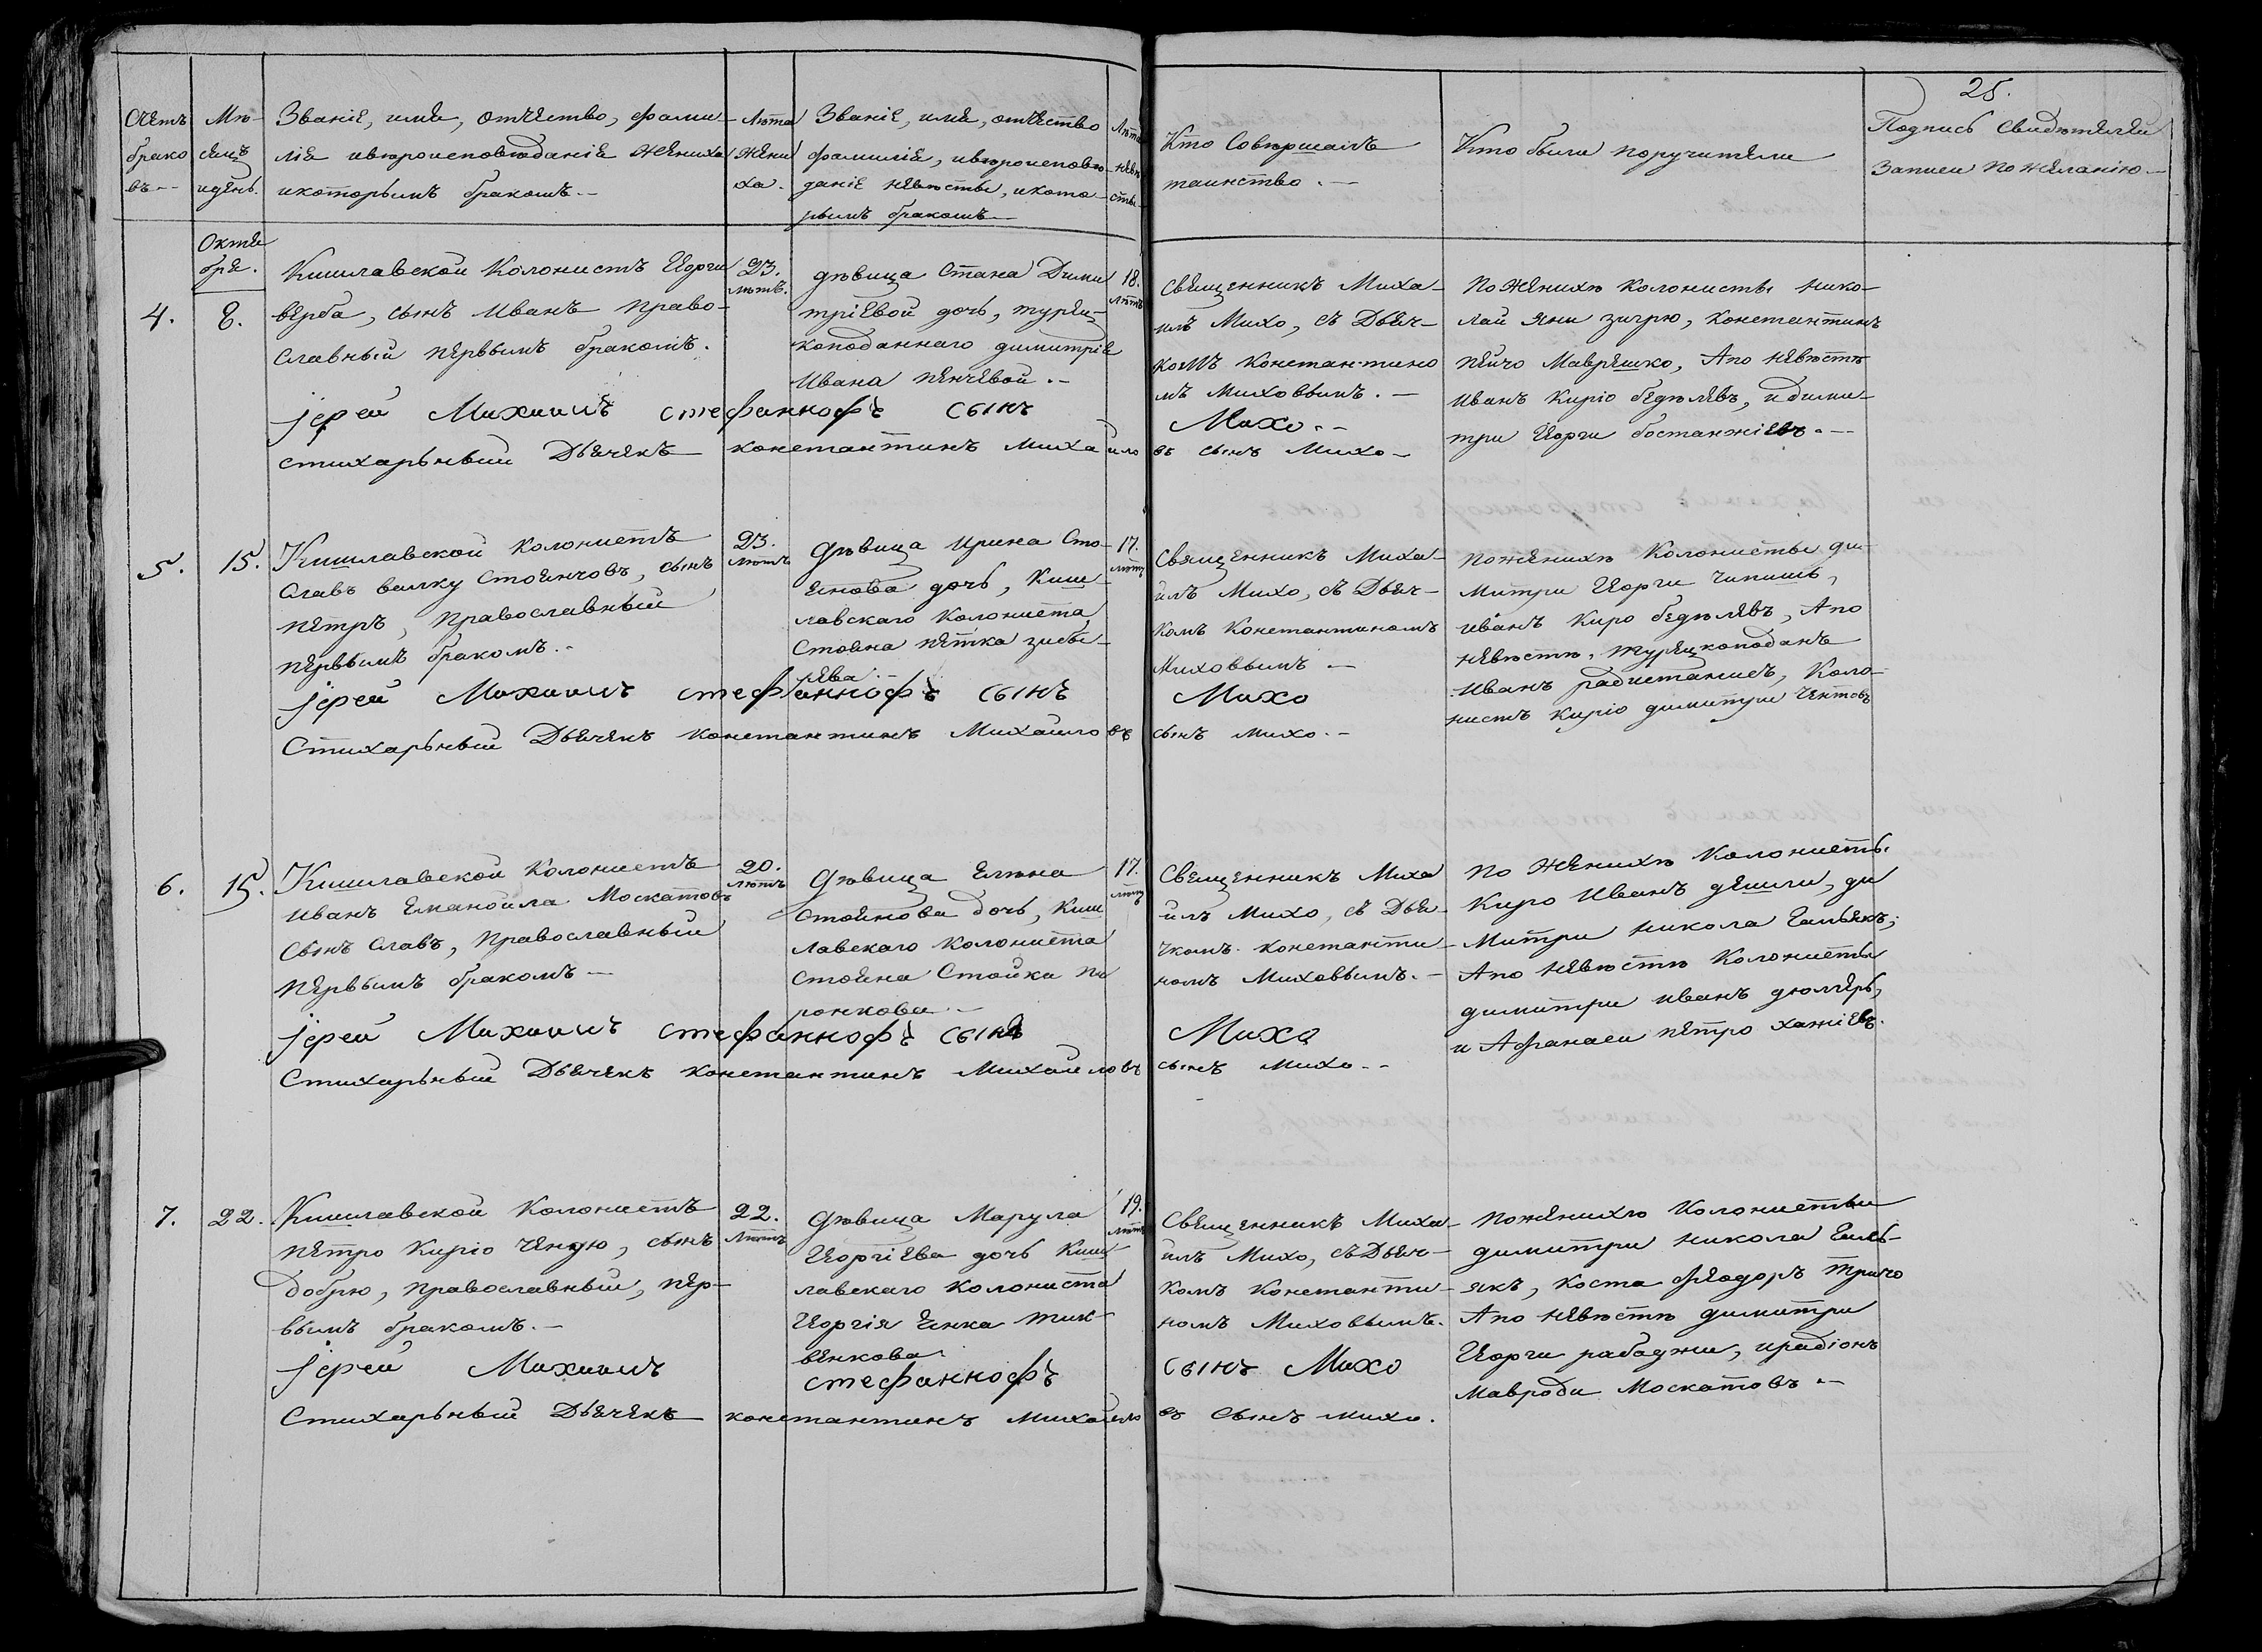 25.
Счетъ
брако
въ
Мѣ-
сяцъ
и день.
Званіе, имя, отчество, фами-
лія и вѣроисповѣданіе жениха
и которымъ бракомъ
Лѣта
жени
ха.
Званіе, имя, отчество
фамилія, и вѣроисповѣ-
даніе невѣсты, и кото-
рымъ бракомъ
Лѣта
невѣ
сты
Кто Совѣршалъ
таинство.
Кто были поручители
Подпись свидѣтелей
Записи по желанію
Октя
бря.
4.
8.
Кишлавской колонистъ Георги
верба, сынъ Иванъ право-
славный первымъ бракомъ.
23.
лѣтъ.
дѣвица Стана Дими
тріевой дочь, турец-
коподаннаго димитріе
Ивана пенчевой.
18.
лѣтъ
Священникъ Миха-
илъ Михо, съ Дьяч-
комъ Константино
мъ Миховымъ.
По женихѣ колонисты нико-
лай яни зигрю, константинъ
пейчо Маврешко, А по невѣстѣ
иванъ Киріо бедѣлевъ, и дими-
три Георги бостанжіевъ.
іерей Михаилъ стефанкофъ сынъ Михо.
стихарьный Дьячекъ константинъ Михайло въ сынъ Михо
5.
15.
Кишлавской колонистъ
Славъ валку Стоянчовъ, сынъ
петръ, православный
первымъ бракомъ.
23.
лѣтъ
дѣвица Ирина Сто-
янова дочь, Киш-
лавскаго колониста
Стояна петка
17.
лѣтъ
Священникъ Миха-
илъ Михо, съ Дьяч-
комъ Константиномъ
Миховымъ
по женихѣ Колонисты ди-
митри Георги Чипишь,
иванъ Киро бедѣлевъ, А по
невѣстѣ, турецкоподанъ
иванъ Коло-
нистъ киріо димитри Чентовъ
іерей Михаилъ стефанкофъ сынъ Михо
Стихарьный Дьячекъ константинъ Михайло въ сынъ михо.
6.
15.
Кишлавской Колонистъ
иванъ Еманоила Москатовъ
Сынъ Славъ, православный
первымъ бракомъ
20.
лѣтъ
дѣвица Елена
Стоянова дочь, Киш
лавскаго колониста
Стояна Стойка пи
ронкова
17.
лѣтъ
Священникъ Миха
илъ Михо, съ Дья-
чкомъ константи-
номъ Миховымъ.
по женихѣ Колонисты
Киро Иванъ дешли, ди
митри никола Гальякъ;
А по невѣстѣ колонисты
димитри иванъ дюлгеръ,
и Афанаси петро хажіевъ.
іерей Михаилъ стефанкофъ сынъ Михо
Стихарьный Дьячекъ константинъ Михайловъ сынъ михо.
7.
22.
Кишлавской Колонистъ
петро Киріо Чендю, сынъ
добрю, православный, пер-
вымъ бракомъ.
22.
лѣтъ
дѣвица Марула
Георгіева дочь Киш-
лавскаго колониста
Георгія Енка тик-
венкова
19.
лѣтъ
Священникъ Миха-
илъ Михо, съ Дьяч-
комъ Константи-
номъ Миховымъ.
по женихѣ Колонисты
димитри никола Галь-
якъ, коста феодоръ тричо
А по невѣстѣ димитри
Георги рабаджи, и радіонъ
мавроди москатовъ
іерей Михаилъ стефанкофъ сынъ Михо
Стихарьный Дьячекъ константинъ Михайло въ сынъ михо.